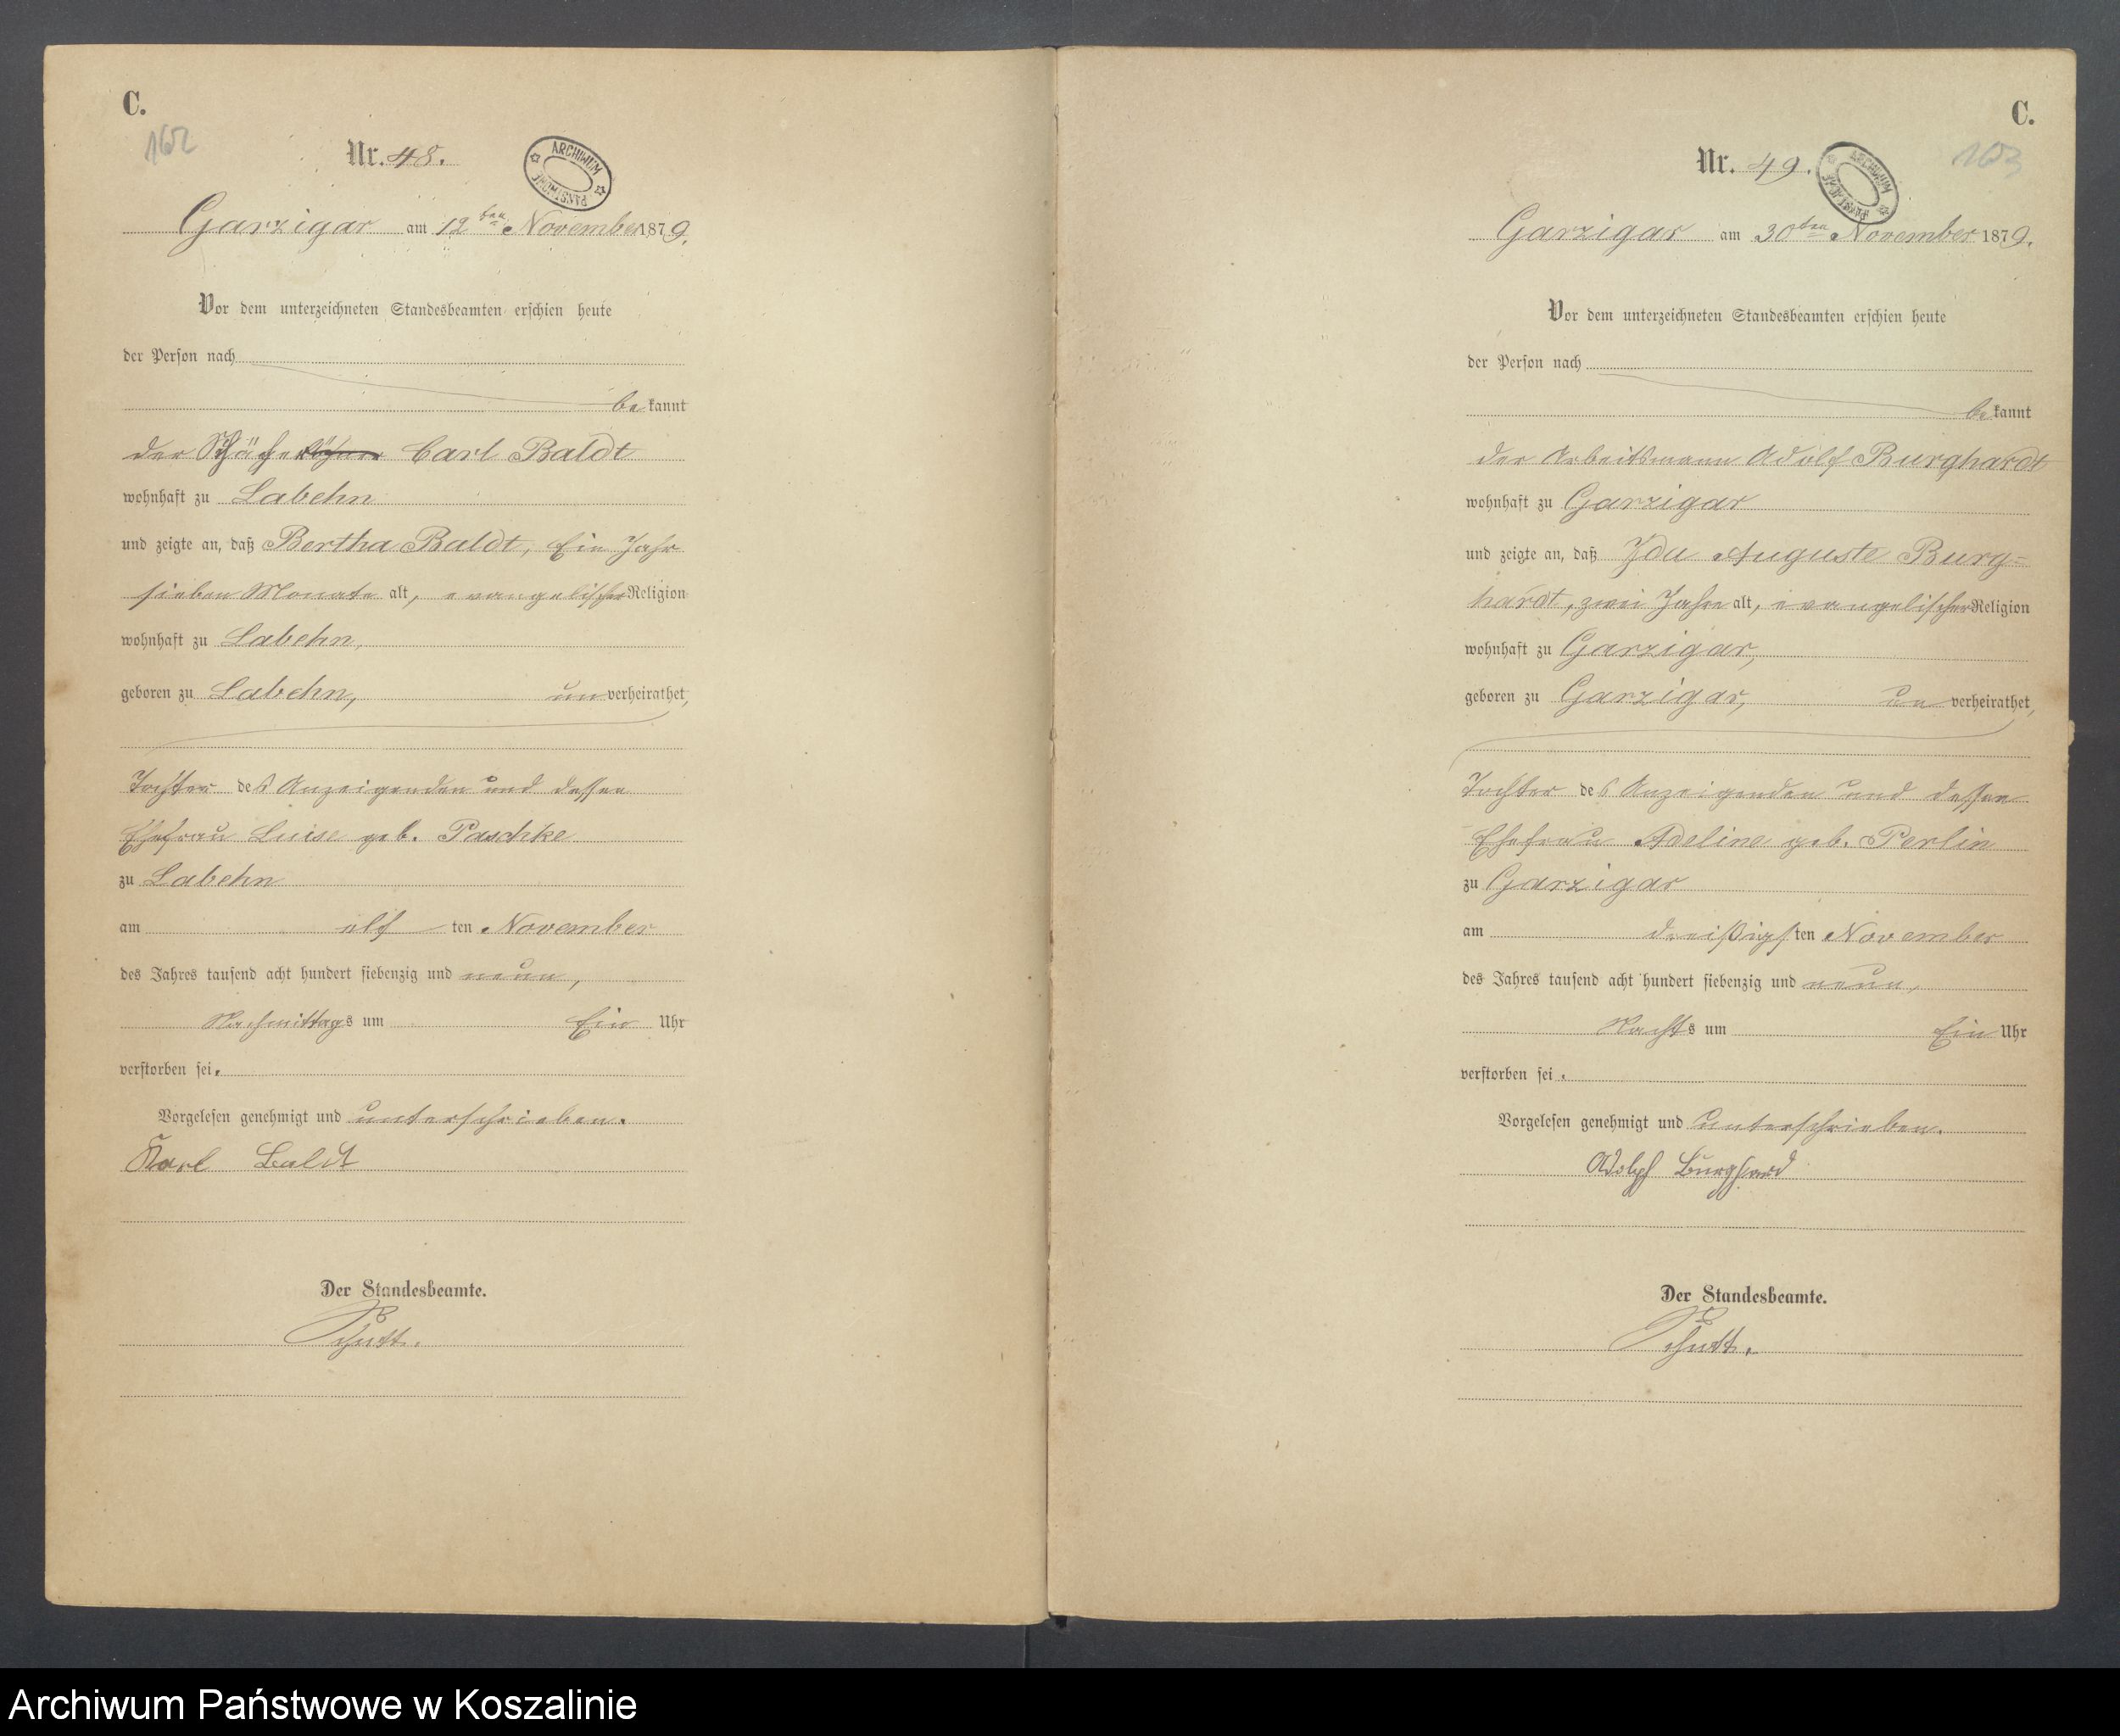 C.
162
Nr. 48.
ARCHIWUM PAŃSTWOWE
Garzigar am 12ten November 1879.
Vor dem unterzeichneten Standesbeamten erschien heute
der Person nach
be kannt
der Schäfer Carl Baldt
wohnhaft zu Labehn
und zeigte an, daß Bertha Baldt, Ein Jahr
sieben Monate alt, evangelischer Religion
wohnhaft zu Labehn,
geboren zu Labehn, un verheirathet,
Tochter des Anzeigenden und dessen
Ehefrau Luise geb. Paschke
zu Labehn
am elf ten November
des Jahres tausend acht hundert siebenzig und neun,
Nachmittags um Ein Uhr
verstorben sei.
Vorgelesen genehmigt und unterschrieben.
Karl Baldt
Der Standesbeamte.
C.
163
Nr. 49.
ARCHIWUM PAŃSTWOWE
Garzigar am 30ten November 1879.
Vor dem unterzeichneten Standesbeamten erschien heute
der Person nach
be kannt
der Arbeitsmann Adolf Burghardt
wohnhaft zu Garzigar
und zeigte an, daß Ida Auguste Burg=
hardt, zwei Jahre alt, evangelischer Religion
wohnhaft zu Garzigar,
geboren zu Garzigar, un verheirathet,
Tochter des Anzeigenden und dessen
Ehefrau Adeline geb. Perlin
zu Garzigar
am dreißigsten November
des Jahres tausend acht hundert siebenzig und neun,
Nachts um Ein Uhr
verstorben sei.
Vorgelesen genehmigt und unterschrieben.
Adolph Burghard
Der Standesbeamte.
Archiwum Państwowe w Koszalinie